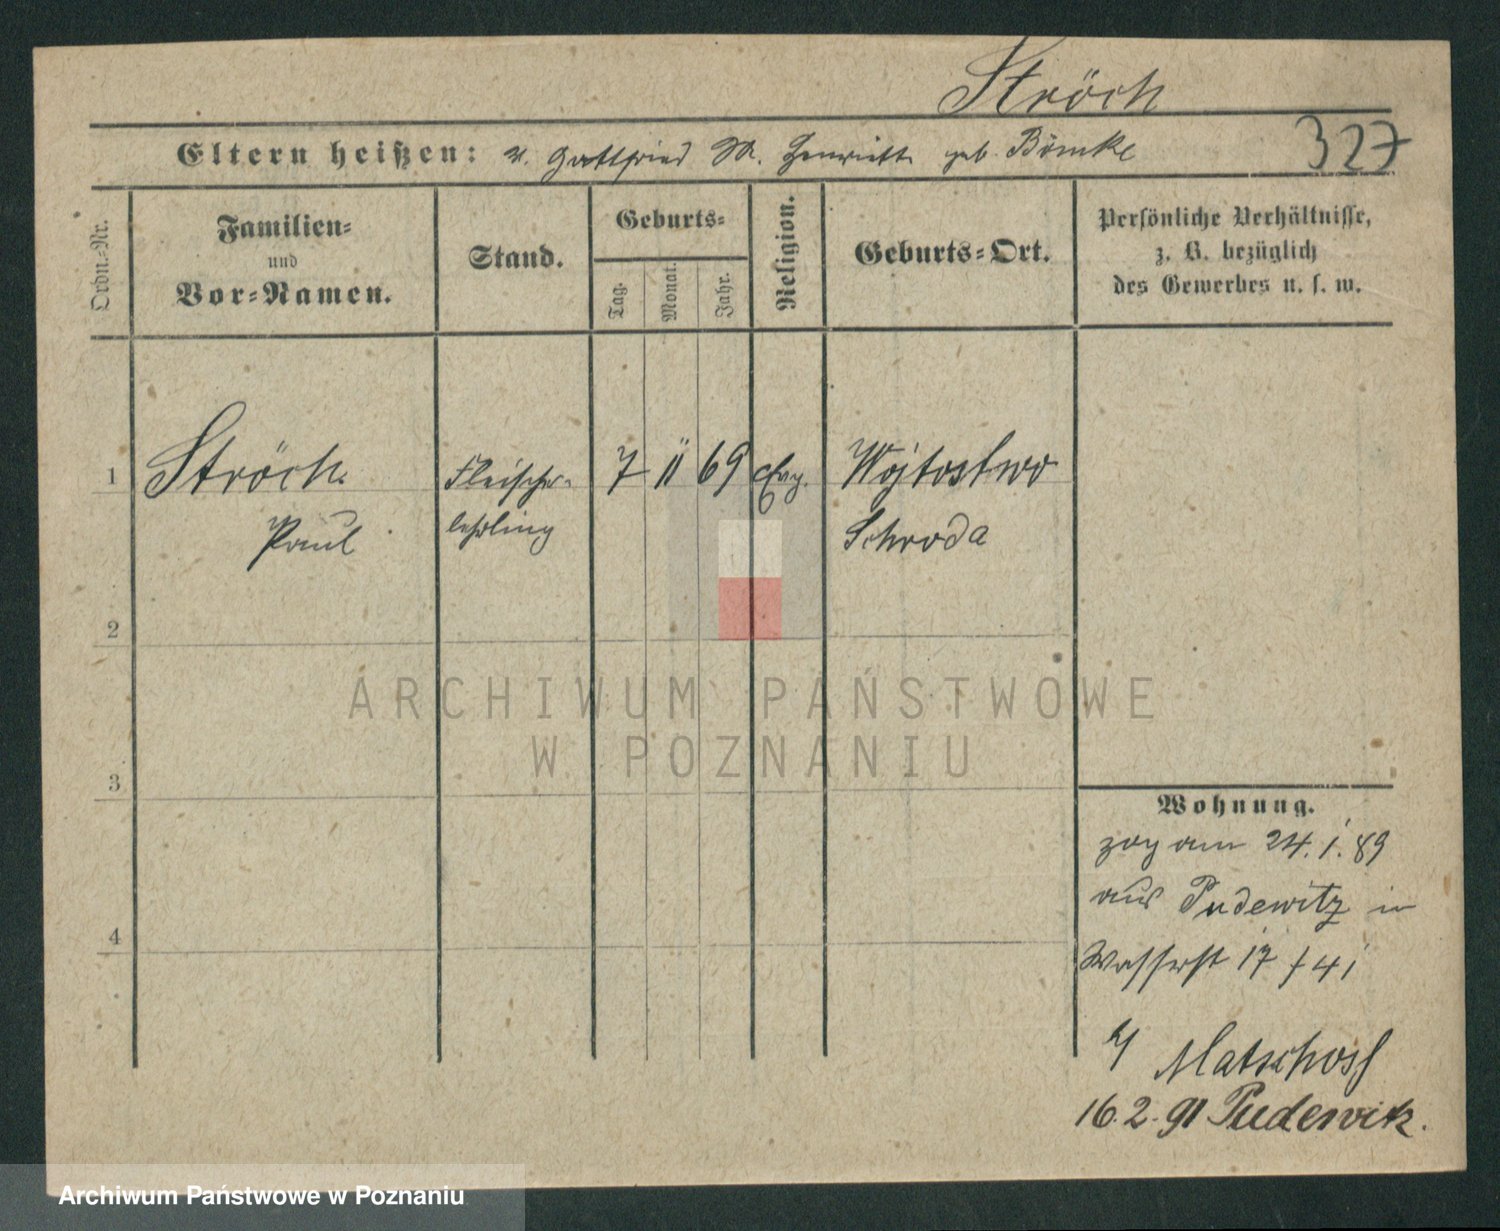 Ströch
327
Eltern heißen: v. Gottfried M. Henriette geb. Bömke
Ordn.-Nr.
Familien-
und
Vor-Namen.
Stand.
Geburts-
Tag.
Monat.
Jahr.
Religion.
Geburts-Ort.
Persönliche Verhältnisse,
z. B. bezüglich
des Gewerbes u. s. w.
1 Ströch. Fleischer- 7 11 69 Evg. Wojtostwo
Paul lehrling Schroda
2
3
4
ARCHIWUM PAŃSTWOWE
W POZNANIU
Wohnung.
zog am 24. 1. 89
aus Pudewitz in
Wasserst 17 / 41
b/ Matschoss
16.2.91 Pudewitz.
Archiwum Państwowe w Poznaniu